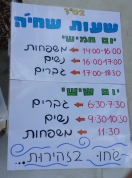 בס"ד
שעות שחיה
יום חמישי
14:00-16:00 ← משפחות
16:00-17:00 ← נשים
17:00-18:30 ← גברים
יום שישי
6:30-7:30 ← גברים
9:30-10:30 ← נשים
11:30 ← משפחות
שחו בזהירות...